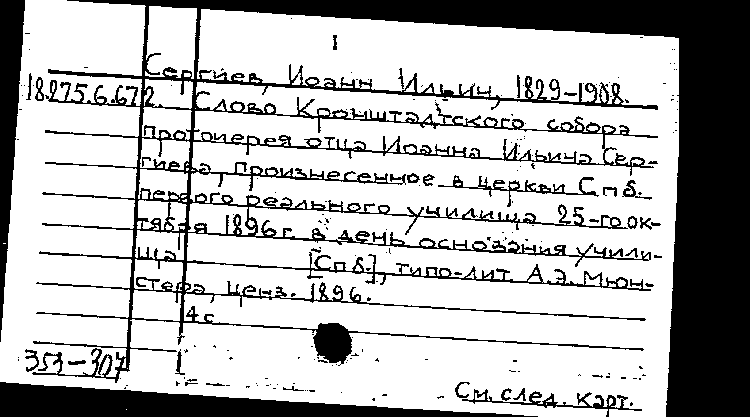 I
Сергиев, Иоанн Ильич, 1829-1908.
18.275.6.672. Слово Кронштадтского собора
протоиерея отца Иоанна Ильича Сер-
гиева, произнесенное в церкви Спб.
первого реального училища 25-го ок-
тября 1896 г. в день основания учили-
ща [Спб.], типо-лит. А.Э. Мюн-
стера, ценз. 1896.
4 с
353-307
См. след. карт.